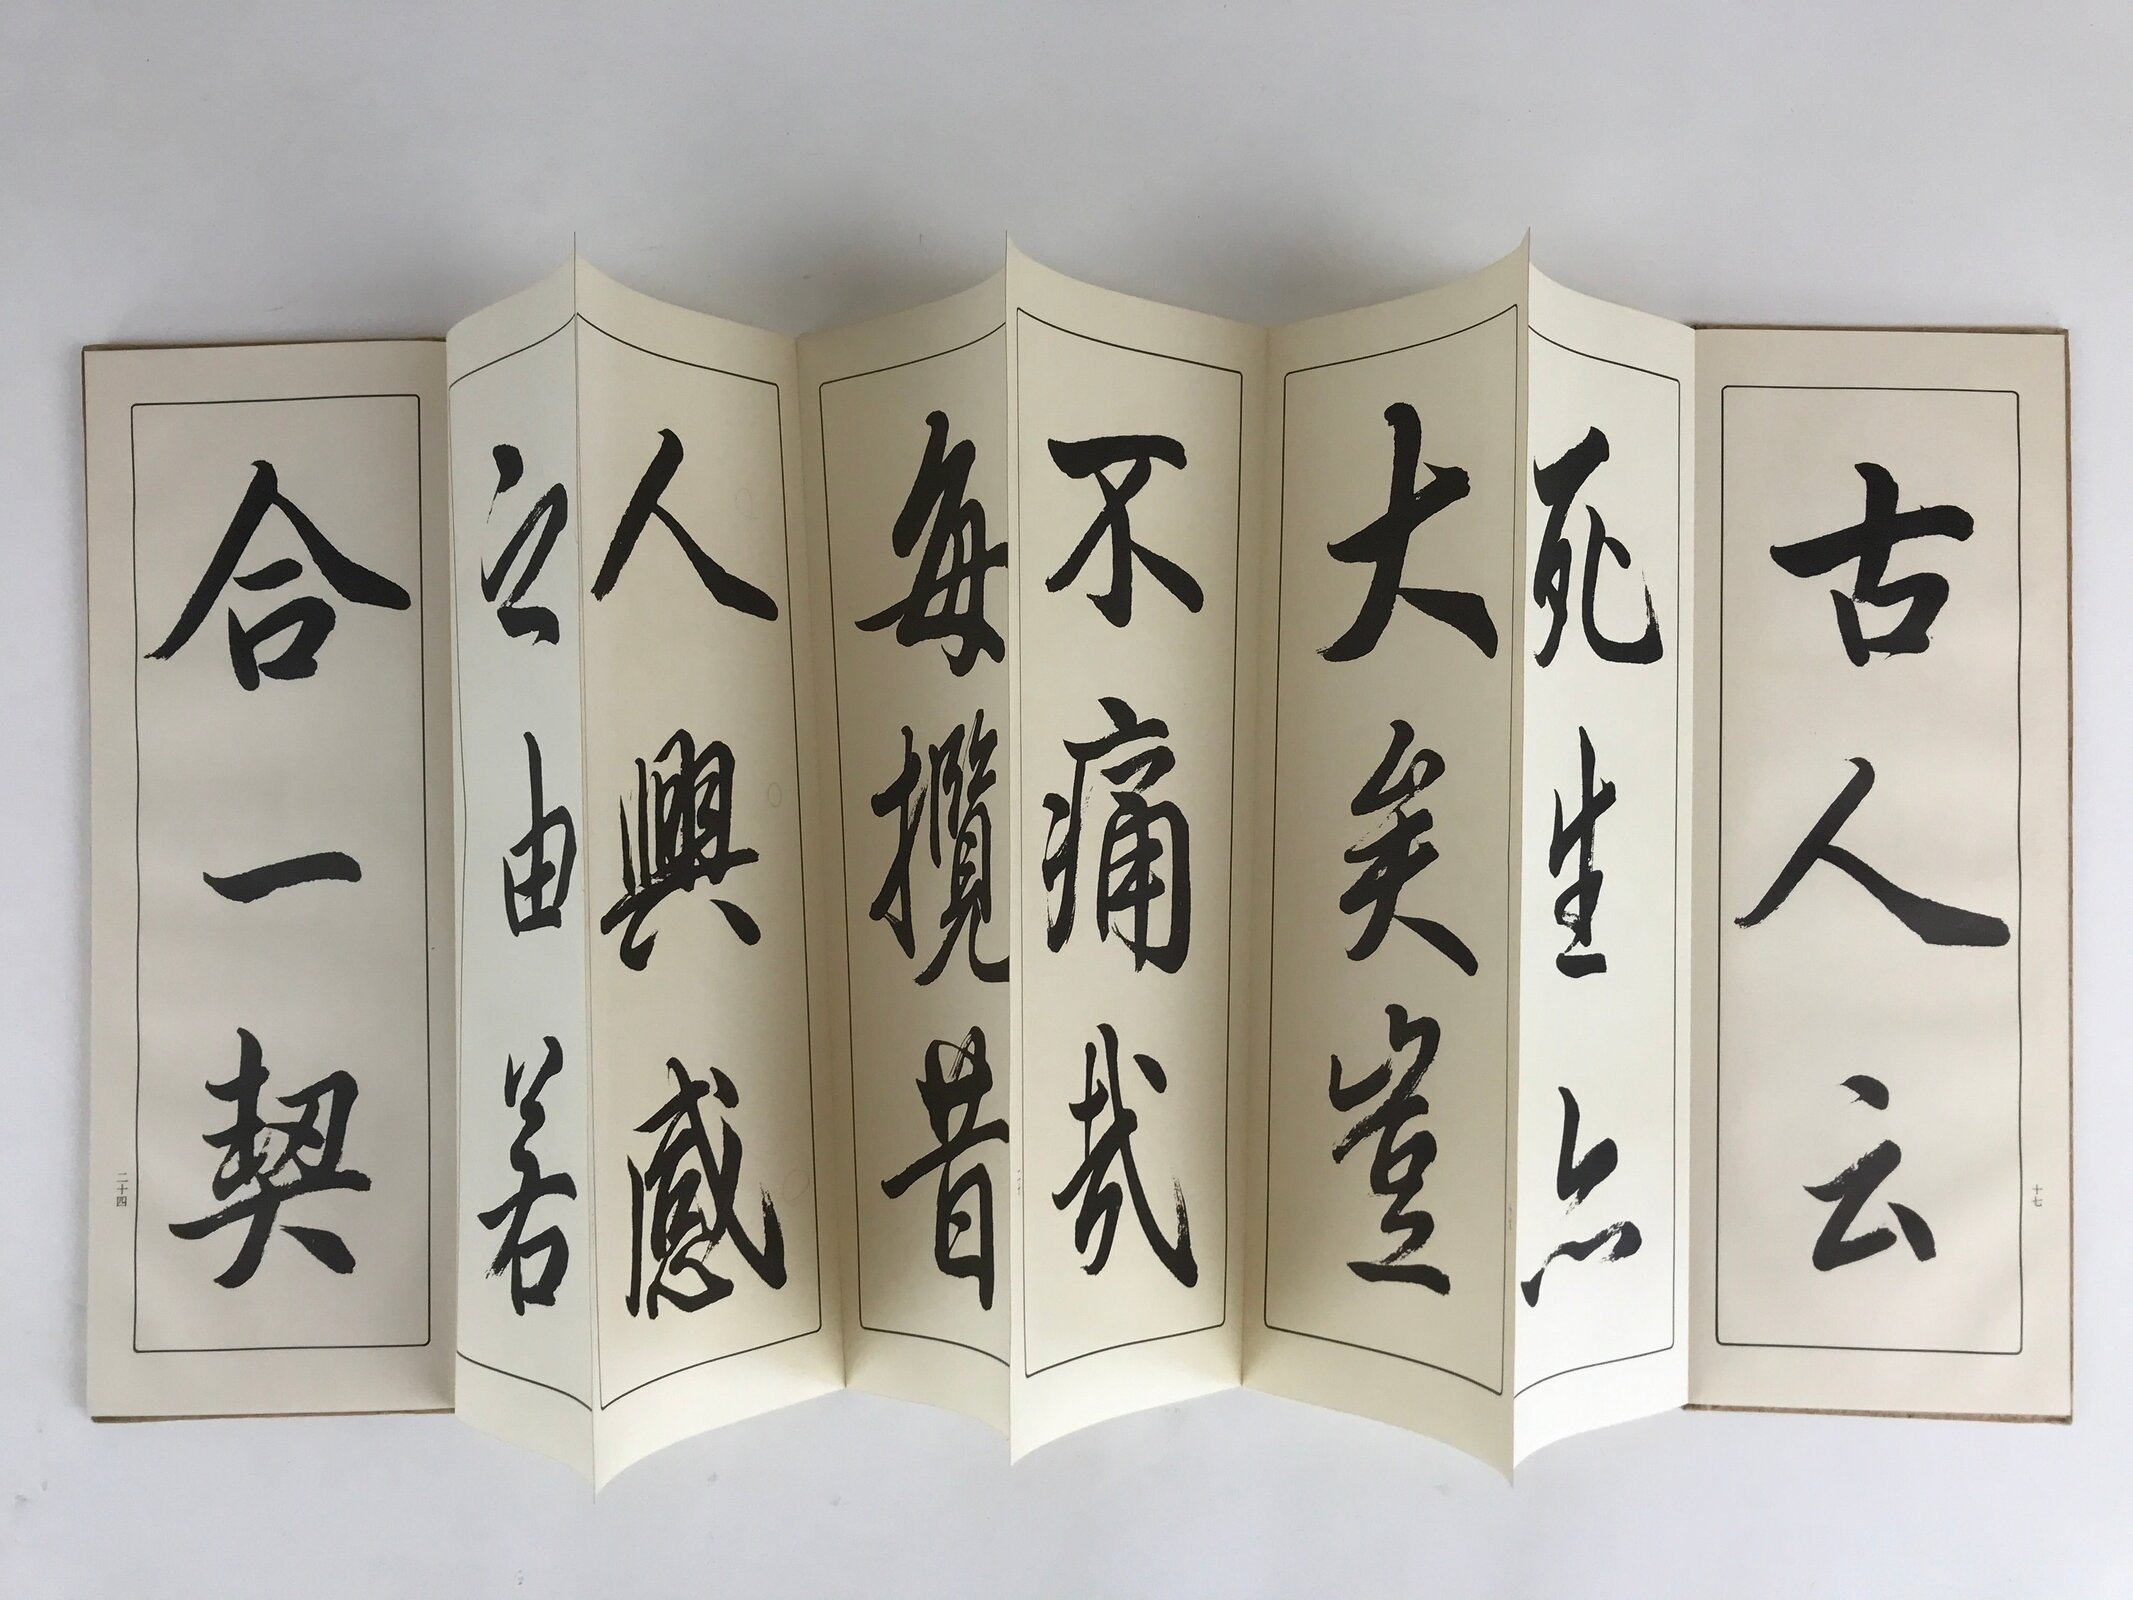 古人云
死生亦
大矣豈
不痛哉
每攬昔
人興感
之由若
合一契
十七
二十四